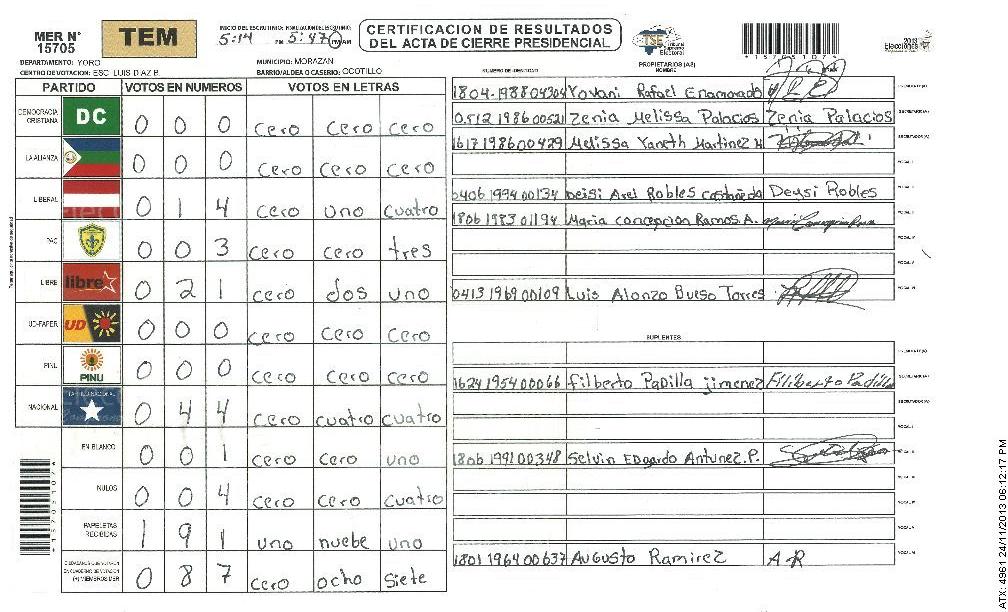 MER N° 15705
TEM
INICIO DEL ESCRUTINIO: FINALIZACION DEL ESCRUTINIO:
5:14 PM 5:47 PM AM
CERTIFICACION DE RESULTADOS
DEL ACTA DE CIERRE PRESIDENCIAL
TSE Tribunal Supremo Electoral
2013 Elecciones
DEPARTAMENTO: YORO
MUNICIPIO: MORAZAN
CENTRO DE VOTACION: ESC. LUIS DIAZ B.
BARRIO/ALDEA O CASERIO: OCOTILLO
PARTIDO VOTOS EN NUMEROS VOTOS EN LETRAS
DEMOCRACIA CRISTIANA DC 0 0 0 cero cero cero
LA ALIANZA 0 0 0 cero cero cero
LIBERAL 0 1 4 cero uno cuatro
PAC 0 0 3 cero cero tres
LIBRE libre 0 2 1 cero dos uno
UD-FAPER UD 0 0 0 cero cero cero
PINU PINU 0 0 0 cero cero cero
NACIONAL PARTIDO NACIONAL 0 4 4 cero cuatro cuatro
EN BLANCO 0 0 1 cero cero uno
NULOS 0 0 4 cero cero cuatro
PAPELETAS RECIBIDAS 1 9 1 uno nuebe uno
CIUDADANOS QUE VOTARON EN CUADERNO DE VOTACION (+) MIEMBROS MER 0 8 7 cero ocho siete
NUMERO DE IDENTIDAD
PROPIETARIOS (AS)
NOMBRE
1804-198804304 Yovani Rafael Enamorado
PRESIDENTE(A)
0512 1986 00521 Zenia Melissa Palacios Zenia Palacios
SECRETARIO(A)
1617 1986 00429 Melissa Yaneth Martinez M
ESCRUTADOR(A)
VOCAL I
0406 1994 00134 Deisi Arel Robles Castañeda Deysi Robles
VOCAL II
1806 1983 01194 Maria concepcion Ramos A.
VOCAL III
VOCAL IV
VOCAL V
0413 1969 00109 Luis Alonzo Bueso Torres
VOCAL VI
SUPLENTES
PRESIDENTE(A)
1624 1954 00066 filberto Padilla jimenez Filiberto Padilla
SECRETARIO(A)
ESCRUTADOR(A)
VOCAL I
1806 1991 00348 Selvin Edgardo Antunez.P.
VOCAL II
VOCAL III
VOCAL IV
VOCAL V
1801 1964 00637 Augusto Ramirez A R
VOCAL VI
ATX: 4961 24/11/2013 06:12:17 PM